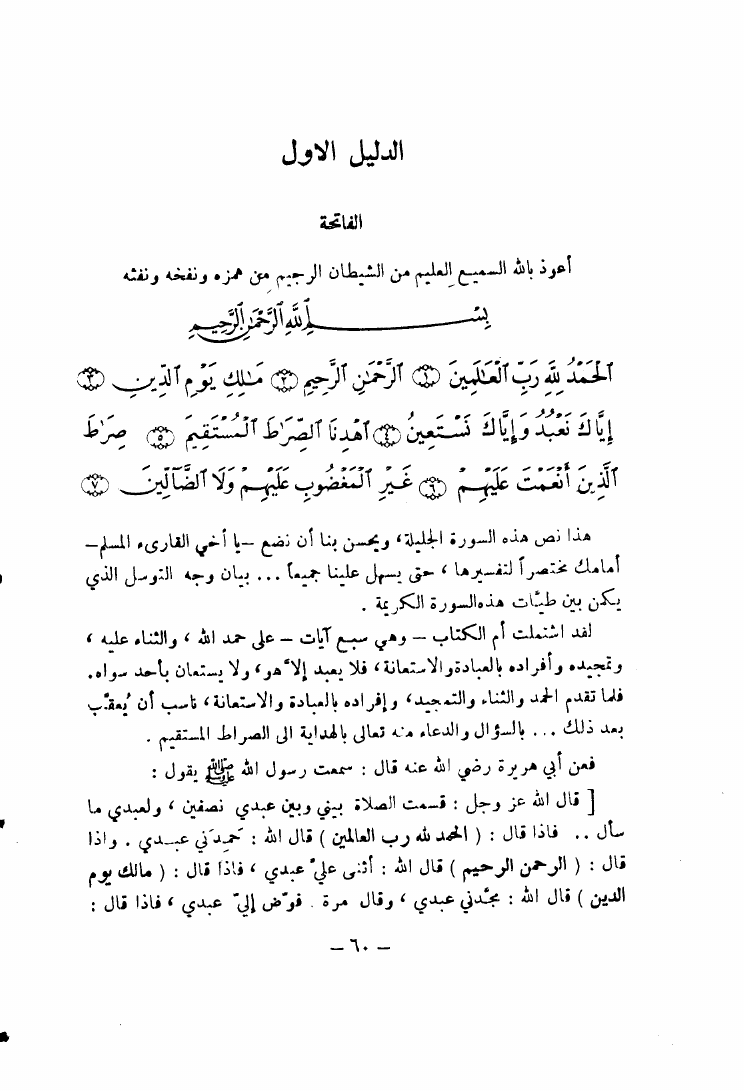 الدليل الاول
الفاتحة
أعوذ بالله السميع العليم من الشيطان الرجيم من همزه ونفخه ونفثه
بِسْمِ ٱللَّهِ ٱلرَّحْمَٰنِ ٱلرَّحِيمِ
ٱلْحَمْدُ لِلَّهِ رَبِّ ٱلْعَٰلَمِينَ ١ ٱلرَّحْمَٰنِ ٱلرَّحِيمِ ٢ مَٰلِكِ يَوْمِ ٱلدِّينِ ٣
إِيَّاكَ نَعْبُدُ وَإِيَّاكَ نَسْتَعِينُ ٤ ٱهْدِنَا ٱلصِّرَٰطَ ٱلْمُسْتَقِيمَ ٥ صِرَٰطَ
ٱلَّذِينَ أَنْعَمْتَ عَلَيْهِمْ ٦ غَيْرِ ٱلْمَغْضُوبِ عَلَيْهِمْ وَلَا ٱلضَّآلِّينَ ٧
هذا نص هذه السورة الجليلة، ويحسن بنا أن نضع –يا أخي القارىء المسلم–
أمامك مختصراً لتفسيرها، حتى يسهل علينا جميعاً... بيان وجه التوسل الذي
يكمن بين طيّات هذه السورة الكريمة .
لقد اشتملت أم الكتاب – وهي سبع آيات – على حمد الله، والثناء عليه،
وتمجيده وأفراده بالعبادة والاستعانة، فلا يعبد إلا هو، ولا يستعان بأحد سواه.
فلما تقدم الحمد والثناء والتمجيد، وإفراده بالعبادة والاستعانة، ناسب أن يُعقّب
بعد ذلك ... بالسؤال والدعاء منه تعالى بالهداية الى الصراط المستقيم .
فعن أبي هريرة رضي الله عنه قال : سمعت رسول الله ﷺ يقول :
[ قال الله عز وجل : قسمت الصلاة بيني وبين عبدي نصفين ، ولعبدي ما
سأل .. فاذا قال : ( الحمد لله رب العالمين ) قال الله : حَمِدَني عبدي . واذا
قال : ( الرحمن الرحيم ) قال الله : أثنى عليّ عبدي ، فاذا قال : ( مالك يوم
الدين ) قال الله : مجّدني عبدي ، وقال مرة . فوّض إليّ عبدي ، فاذا قال :
– ٦٠ –